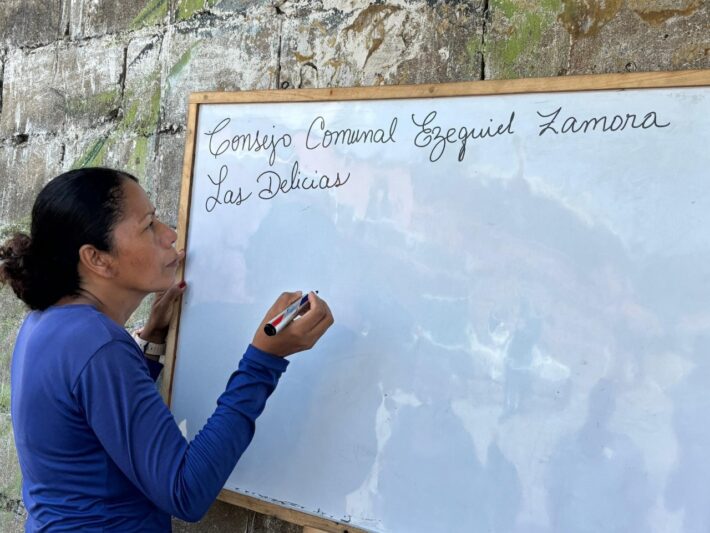 Consejo Comunal Ezequiel Zamora
Las Delicias